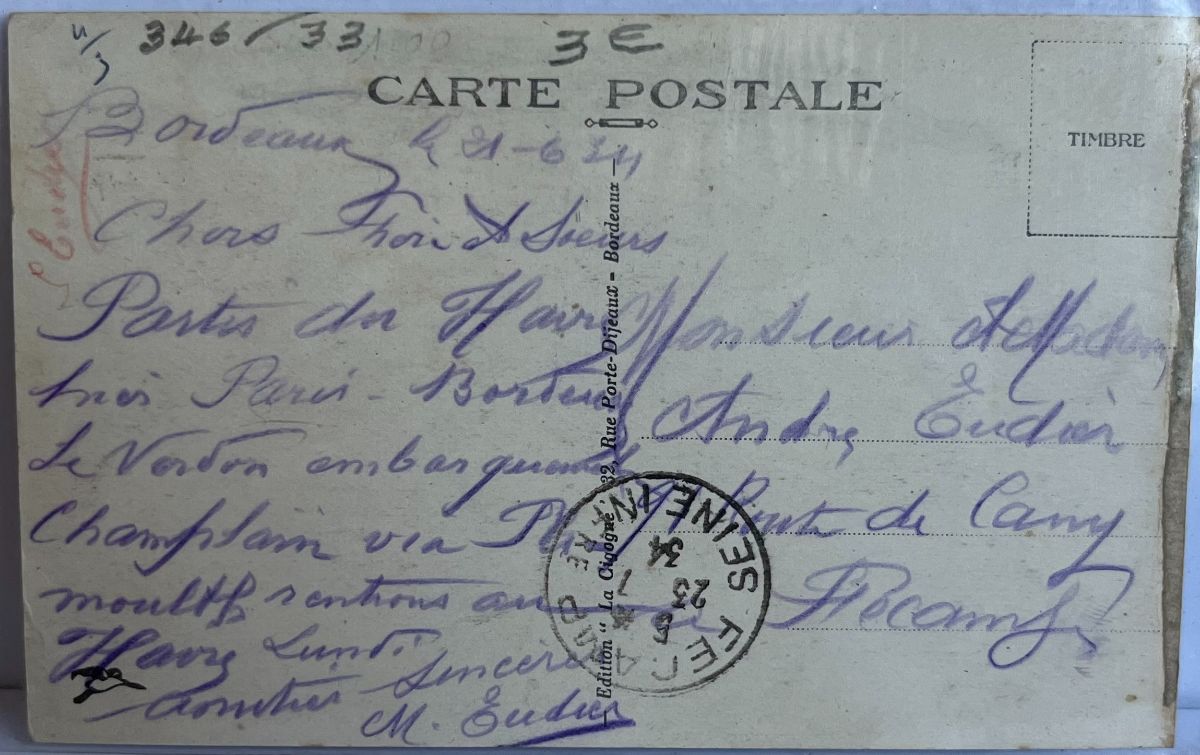 346/33
3 €
CARTE POSTALE
TIMBRE
Bordeaux le 21-6 34
Chers Frère et Soeurs
Partis du Havre
hier Paris - Bordeaux
Le Verdon embarquons
Champlain via Ply
mouth rentrons au
Havre Lundi
Sincères
amitiés
M. Eudier
Monsieur et Madame
André Eudier
Route de Cany
Fécamp
Edition "La Cigogne", 32, Rue Porte-Dijeaux - Bordeaux
FECAMP
SEINE INFRE
23
34
Eudier